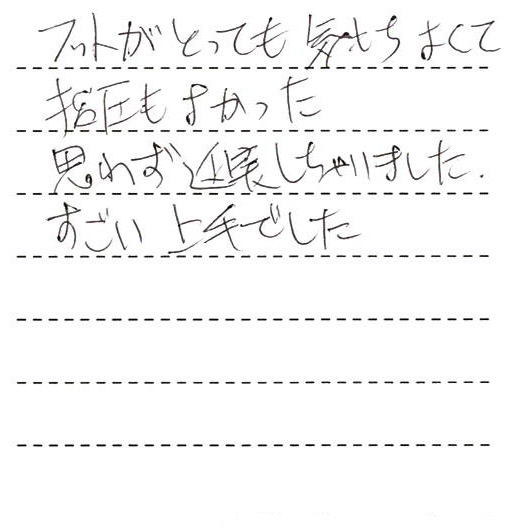 フットがとっても気もちよくて
指圧もよかった
思わず延長しちゃいました.
すごい上手でした